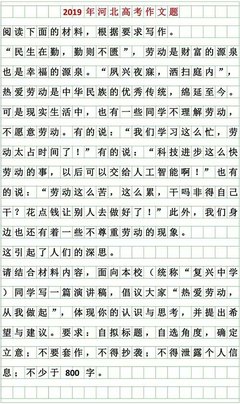 2019 年河北高考作文题
阅读下面的材料，根据要求写作。
“民生在勤，勤则不匮”，劳动是财富的源泉，
也是幸福的源泉。“夙兴夜寐，洒扫庭内”，
热爱劳动是中华民族的优秀传统，绵延至今。
可是现实生活中，也有一些同学不理解劳动，
不愿意劳动。有的说：“我们学习这么忙，劳
动太占时间了！”有的说：“科技进步这么快，
劳动的事，以后可以交给人工智能啊！”也有
的说：“劳动这么苦，这么累，干吗非得自己
干？花点钱让别人去做好了！”此外，我们身
边也还有着一些不尊重劳动的现象。
这引起了人们的深思。
请结合材料内容，面向本校（统称“复兴中学”
）同学写一篇演讲稿，倡议大家“热爱劳动，
从我做起”，体现你的认识与思考，并提出希
望与建议。要求：自拟标题，自选角度，确定
立意；不要套作，不得抄袭；不得泄露个人信
息；不少于 800 字。